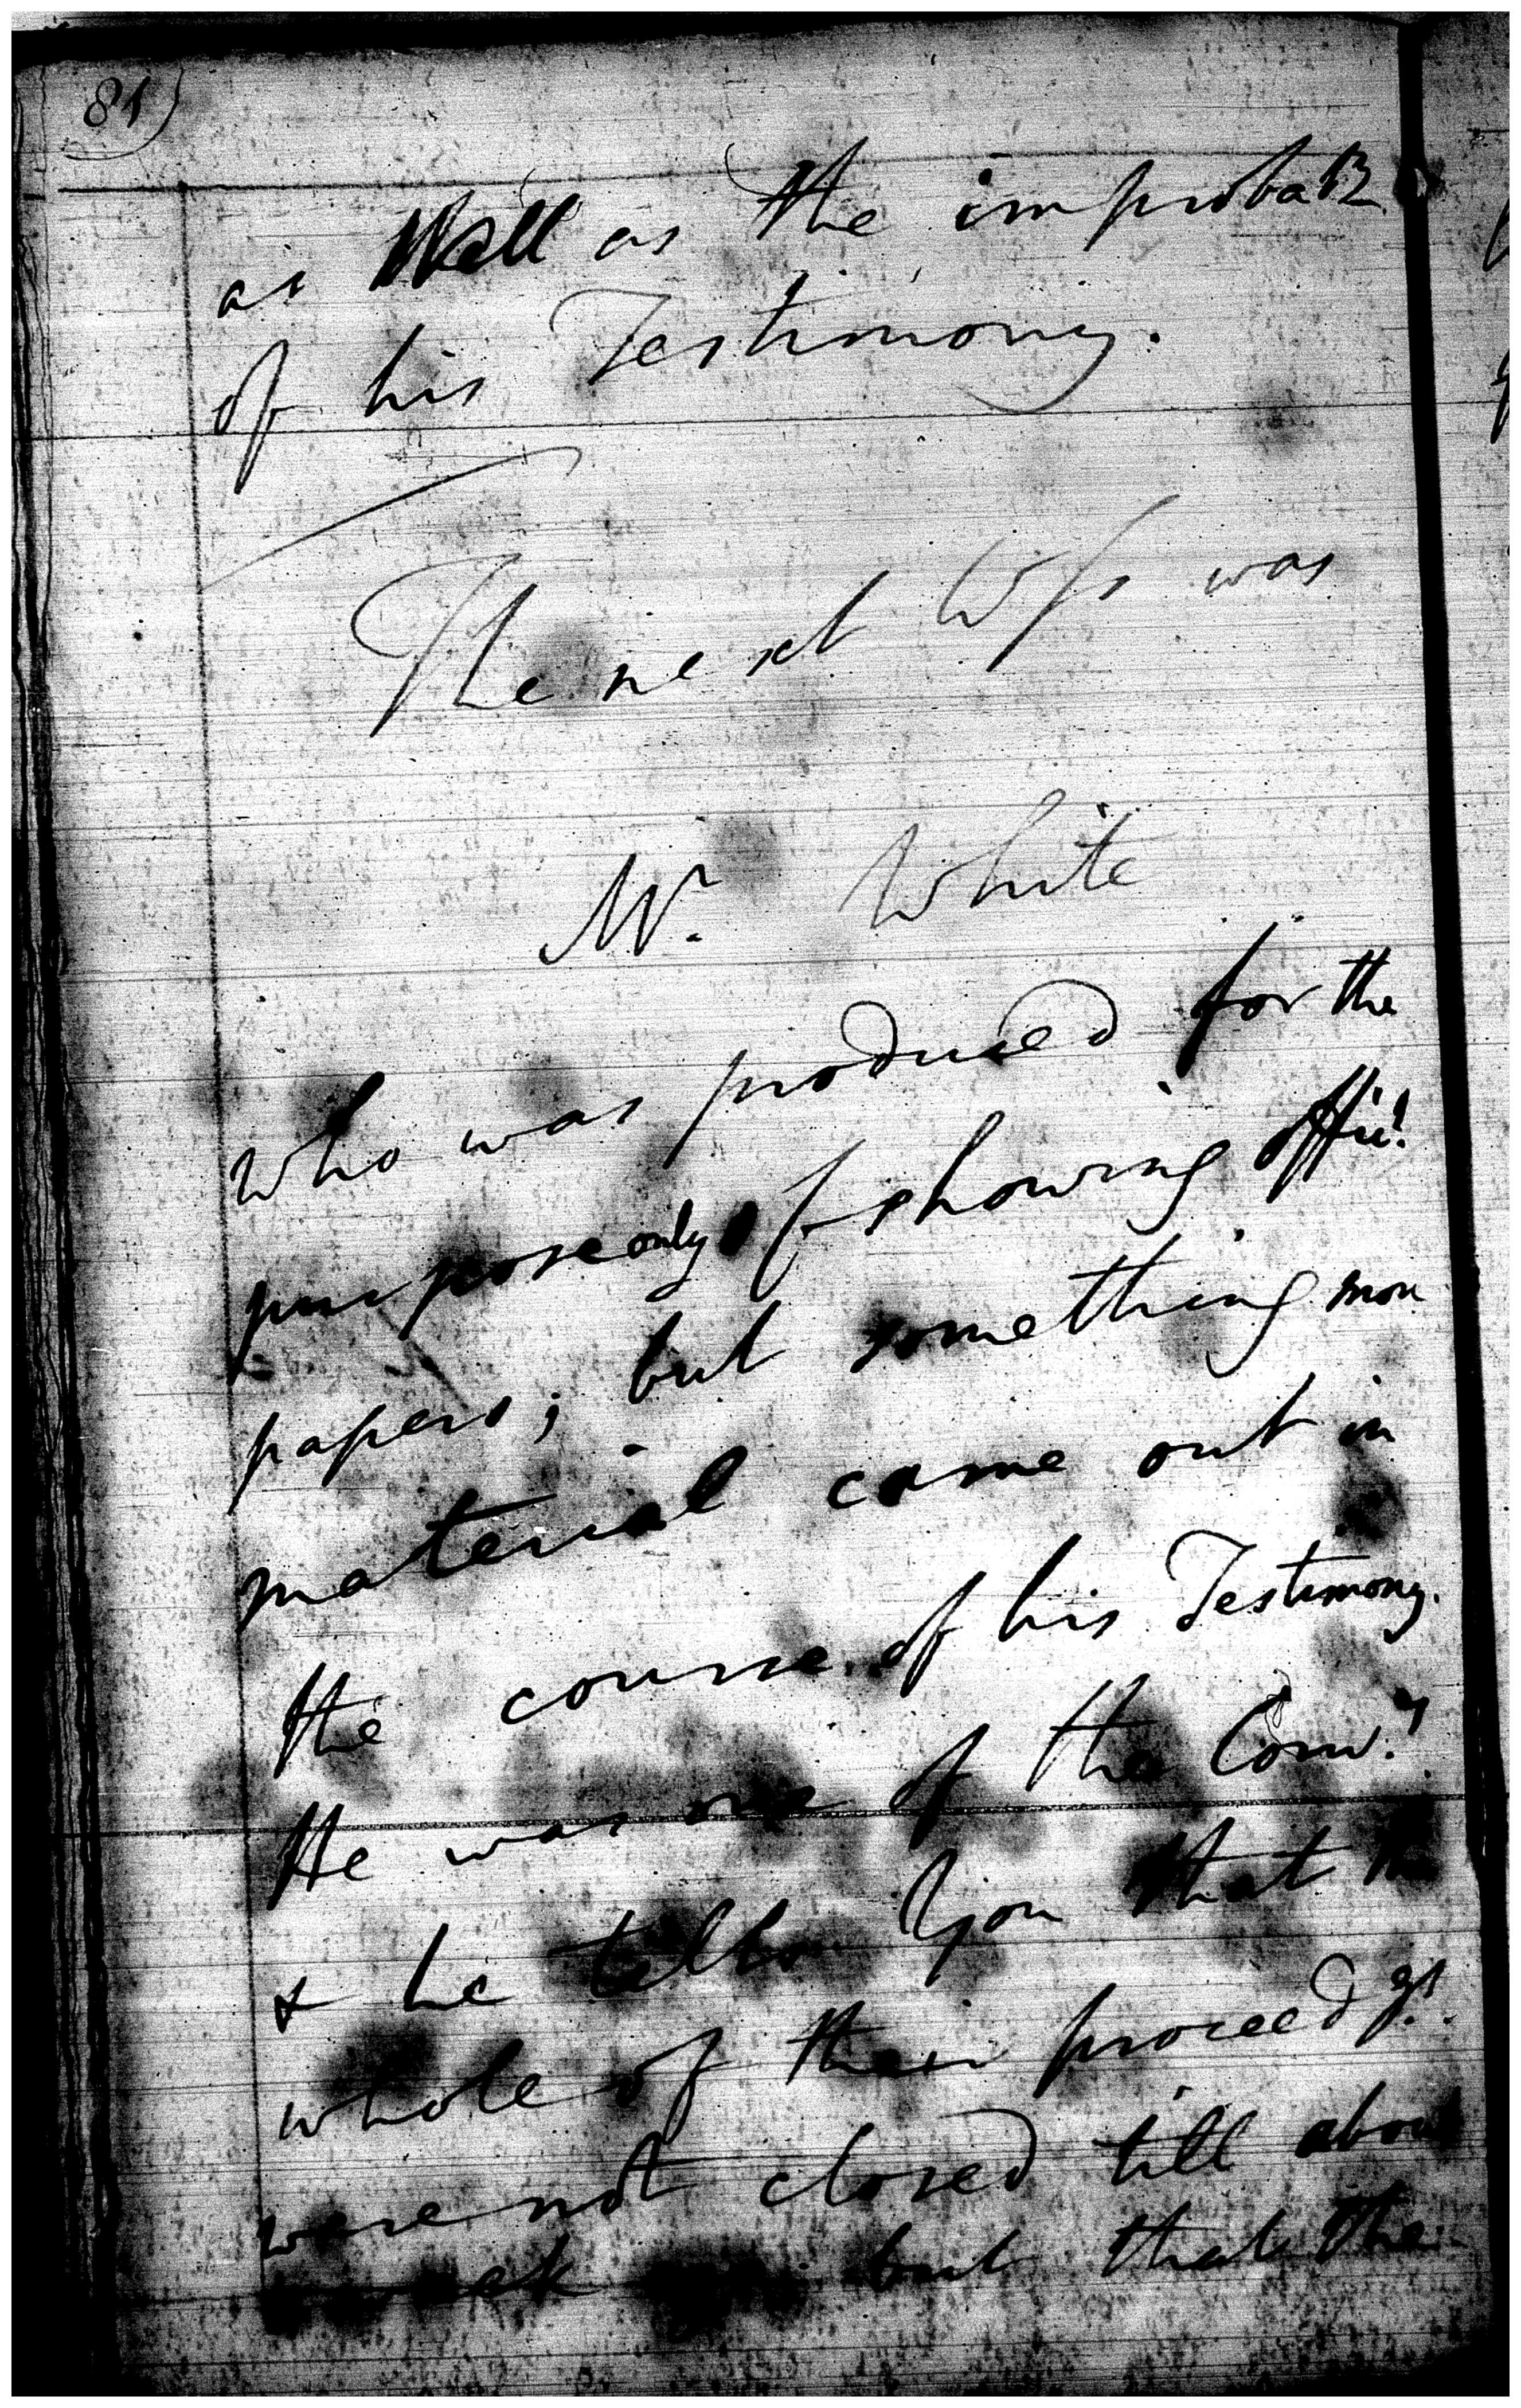 81)
as Well as the improbab
of his Testimony.
The next Wss was
Mr. White
who was produced for the
purpose only of showing offic!
papers; but something more
material came out in
the course of his Testimony.
He was one of the Com.rs
& he tells You that the
whole of their proceedgs.
were not closed till about
but that the